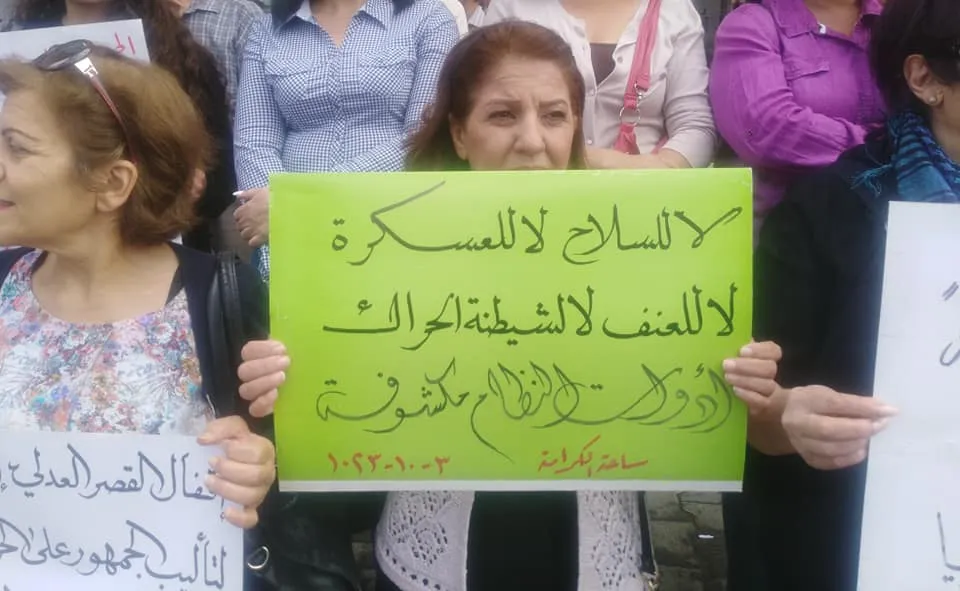 لا للسلاح لا للعسكرة
لا للعنف لا لشيطنة الحراك
أدوات النظام مكشوفة
ساحة الكرامة ٣-١٠-١٠٢٣
إقفال القصر العدلي
لتأليب الجمهور على